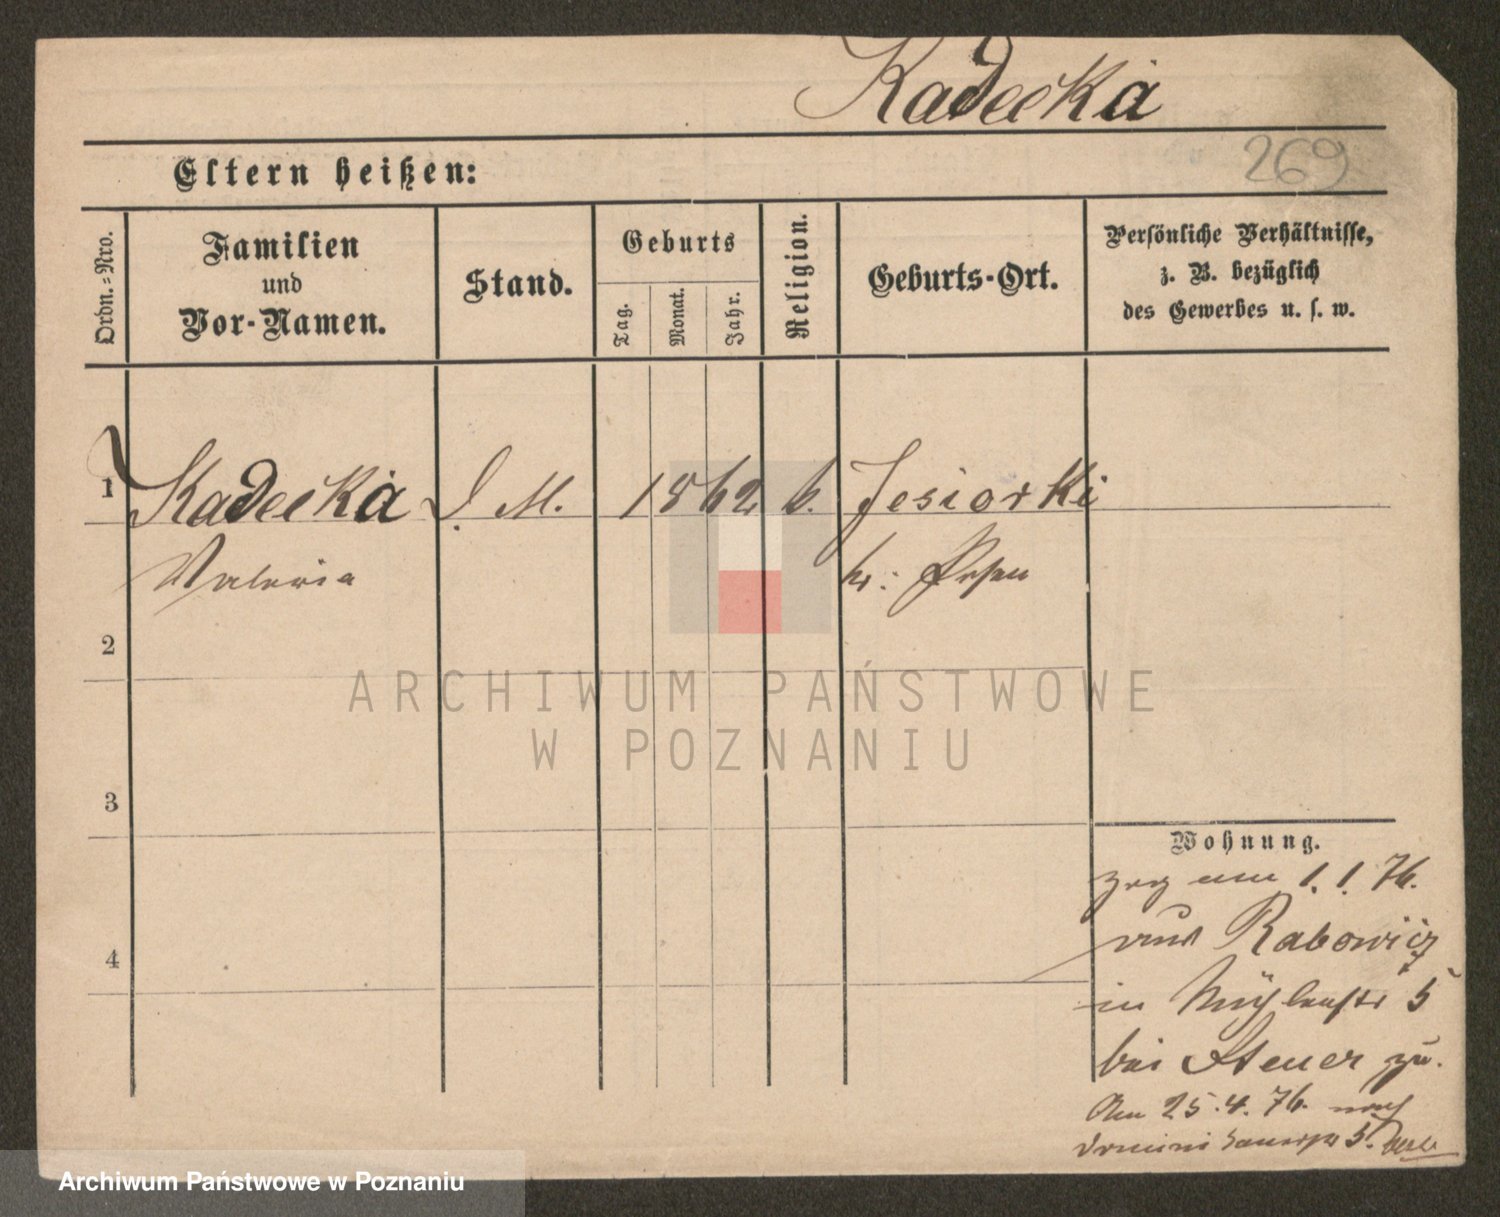 Kadecka
269
Eltern heißen:
Ordn.-Nro.
Familien
und
Vor-Namen.
Stand.
Geburts
Tag.
Monat.
Jahr.
Religion.
Geburts-Ort.
Persönliche Verhältnisse,
z. B. bezüglich
des Gewerbes u. s. w.
1 Kadecka D. M. 1862 k. Jesiorki
Valeria Kr: Posen
2
ARCHIWUM PAŃSTWOWE
W POZNANIU
3
4
Wohnung.
zog am 1. 1. 76.
aus Rabowicz
in Mühlenstr 5
bei Steuer zu.
Am 25.4.76. nach
5.
Archiwum Państwowe w Poznaniu